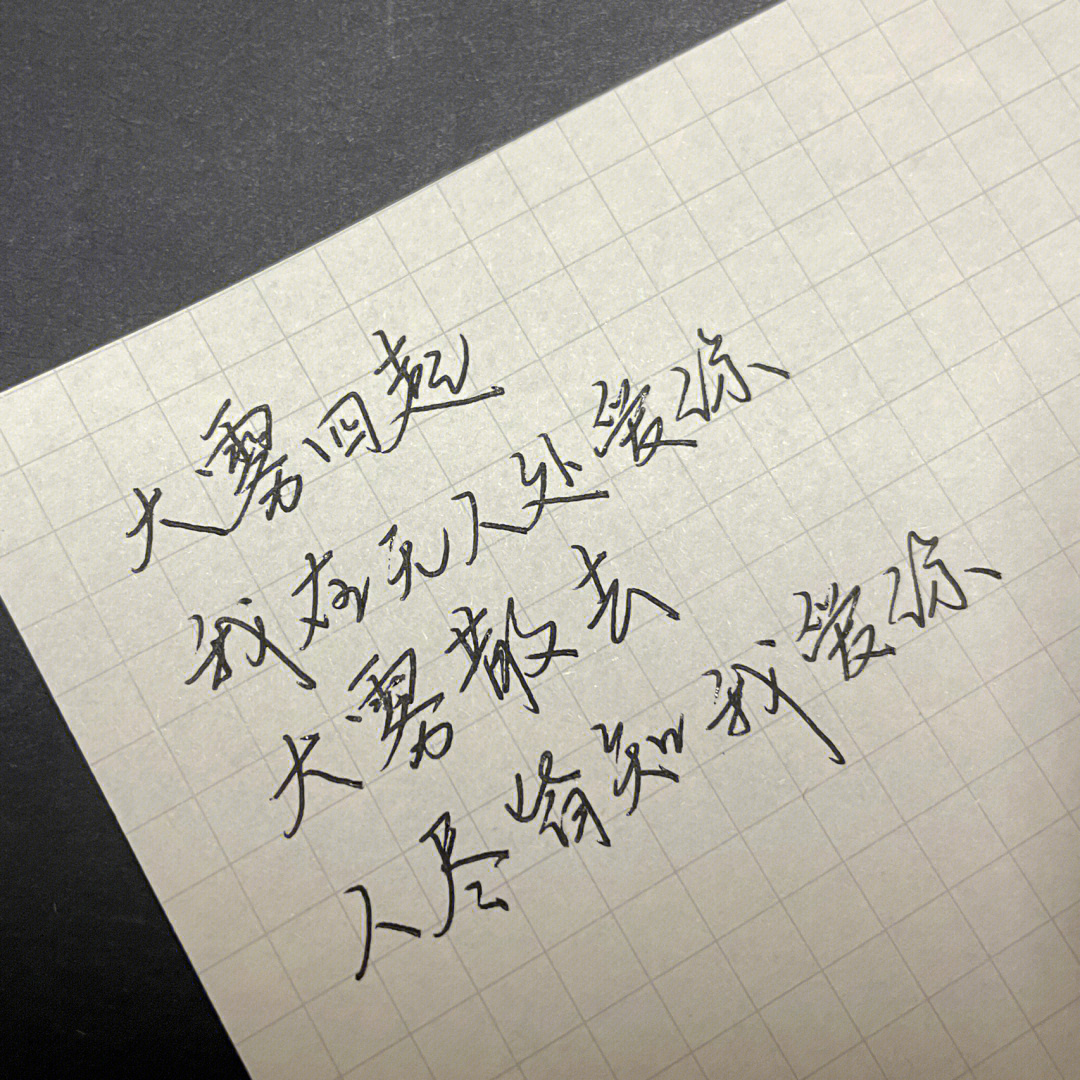 大雾四起
我在无人处爱你
大雾散去
人尽皆知我爱你